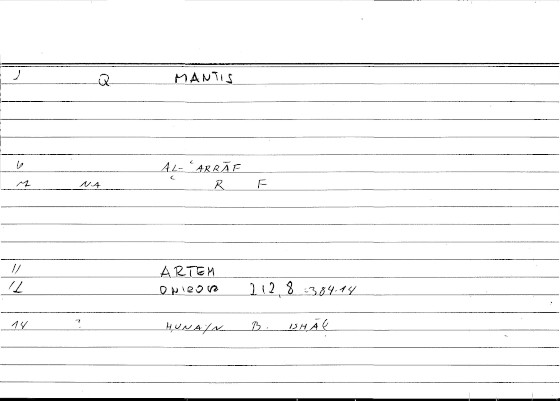 1 Q MANTIS
6 AL-ʿARRĀF
M NA ʿ R F
11 ARTEM
12 ONIROCR 212,8 -384.14
14 ? ḤUNAYN B. ISḤĀḲ